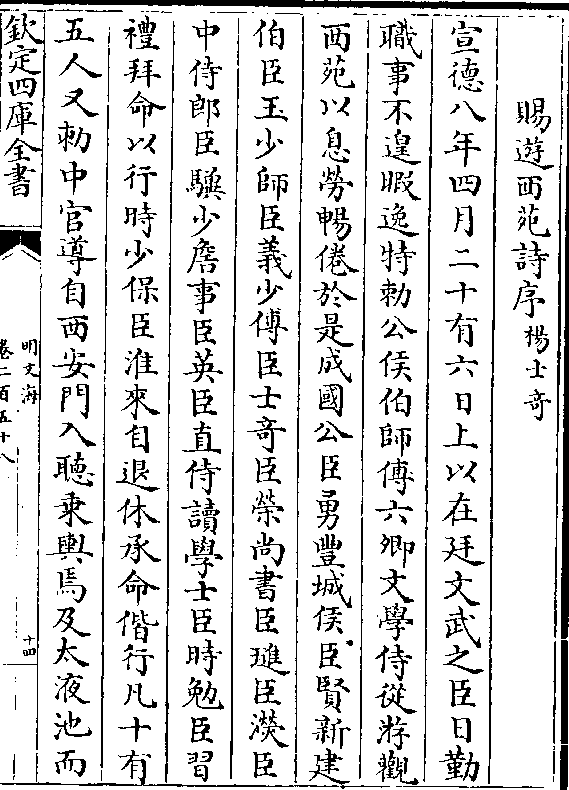 賜遊西苑詩序楊士竒
宣德八年四月二十有六日上以在廷文武之臣日勤
職事不遑暇逸特勅公侯伯師傅六卿文學侍從游觀
西苑以息勞暢倦於是成國公臣勇豐城侯臣賢新建
伯臣玉少師臣義少傅臣士竒臣榮尚書臣璡臣濙臣
中侍郎臣驥少詹事臣英臣直侍讀學士臣時勉臣習
禮拜命以行時少保臣淮來自退休承命偕行凡十有
五人又勅中官導自西安門入聽乗輿馬及太液池而
欽定四庫全書
明文海
卷二百五十八
十四